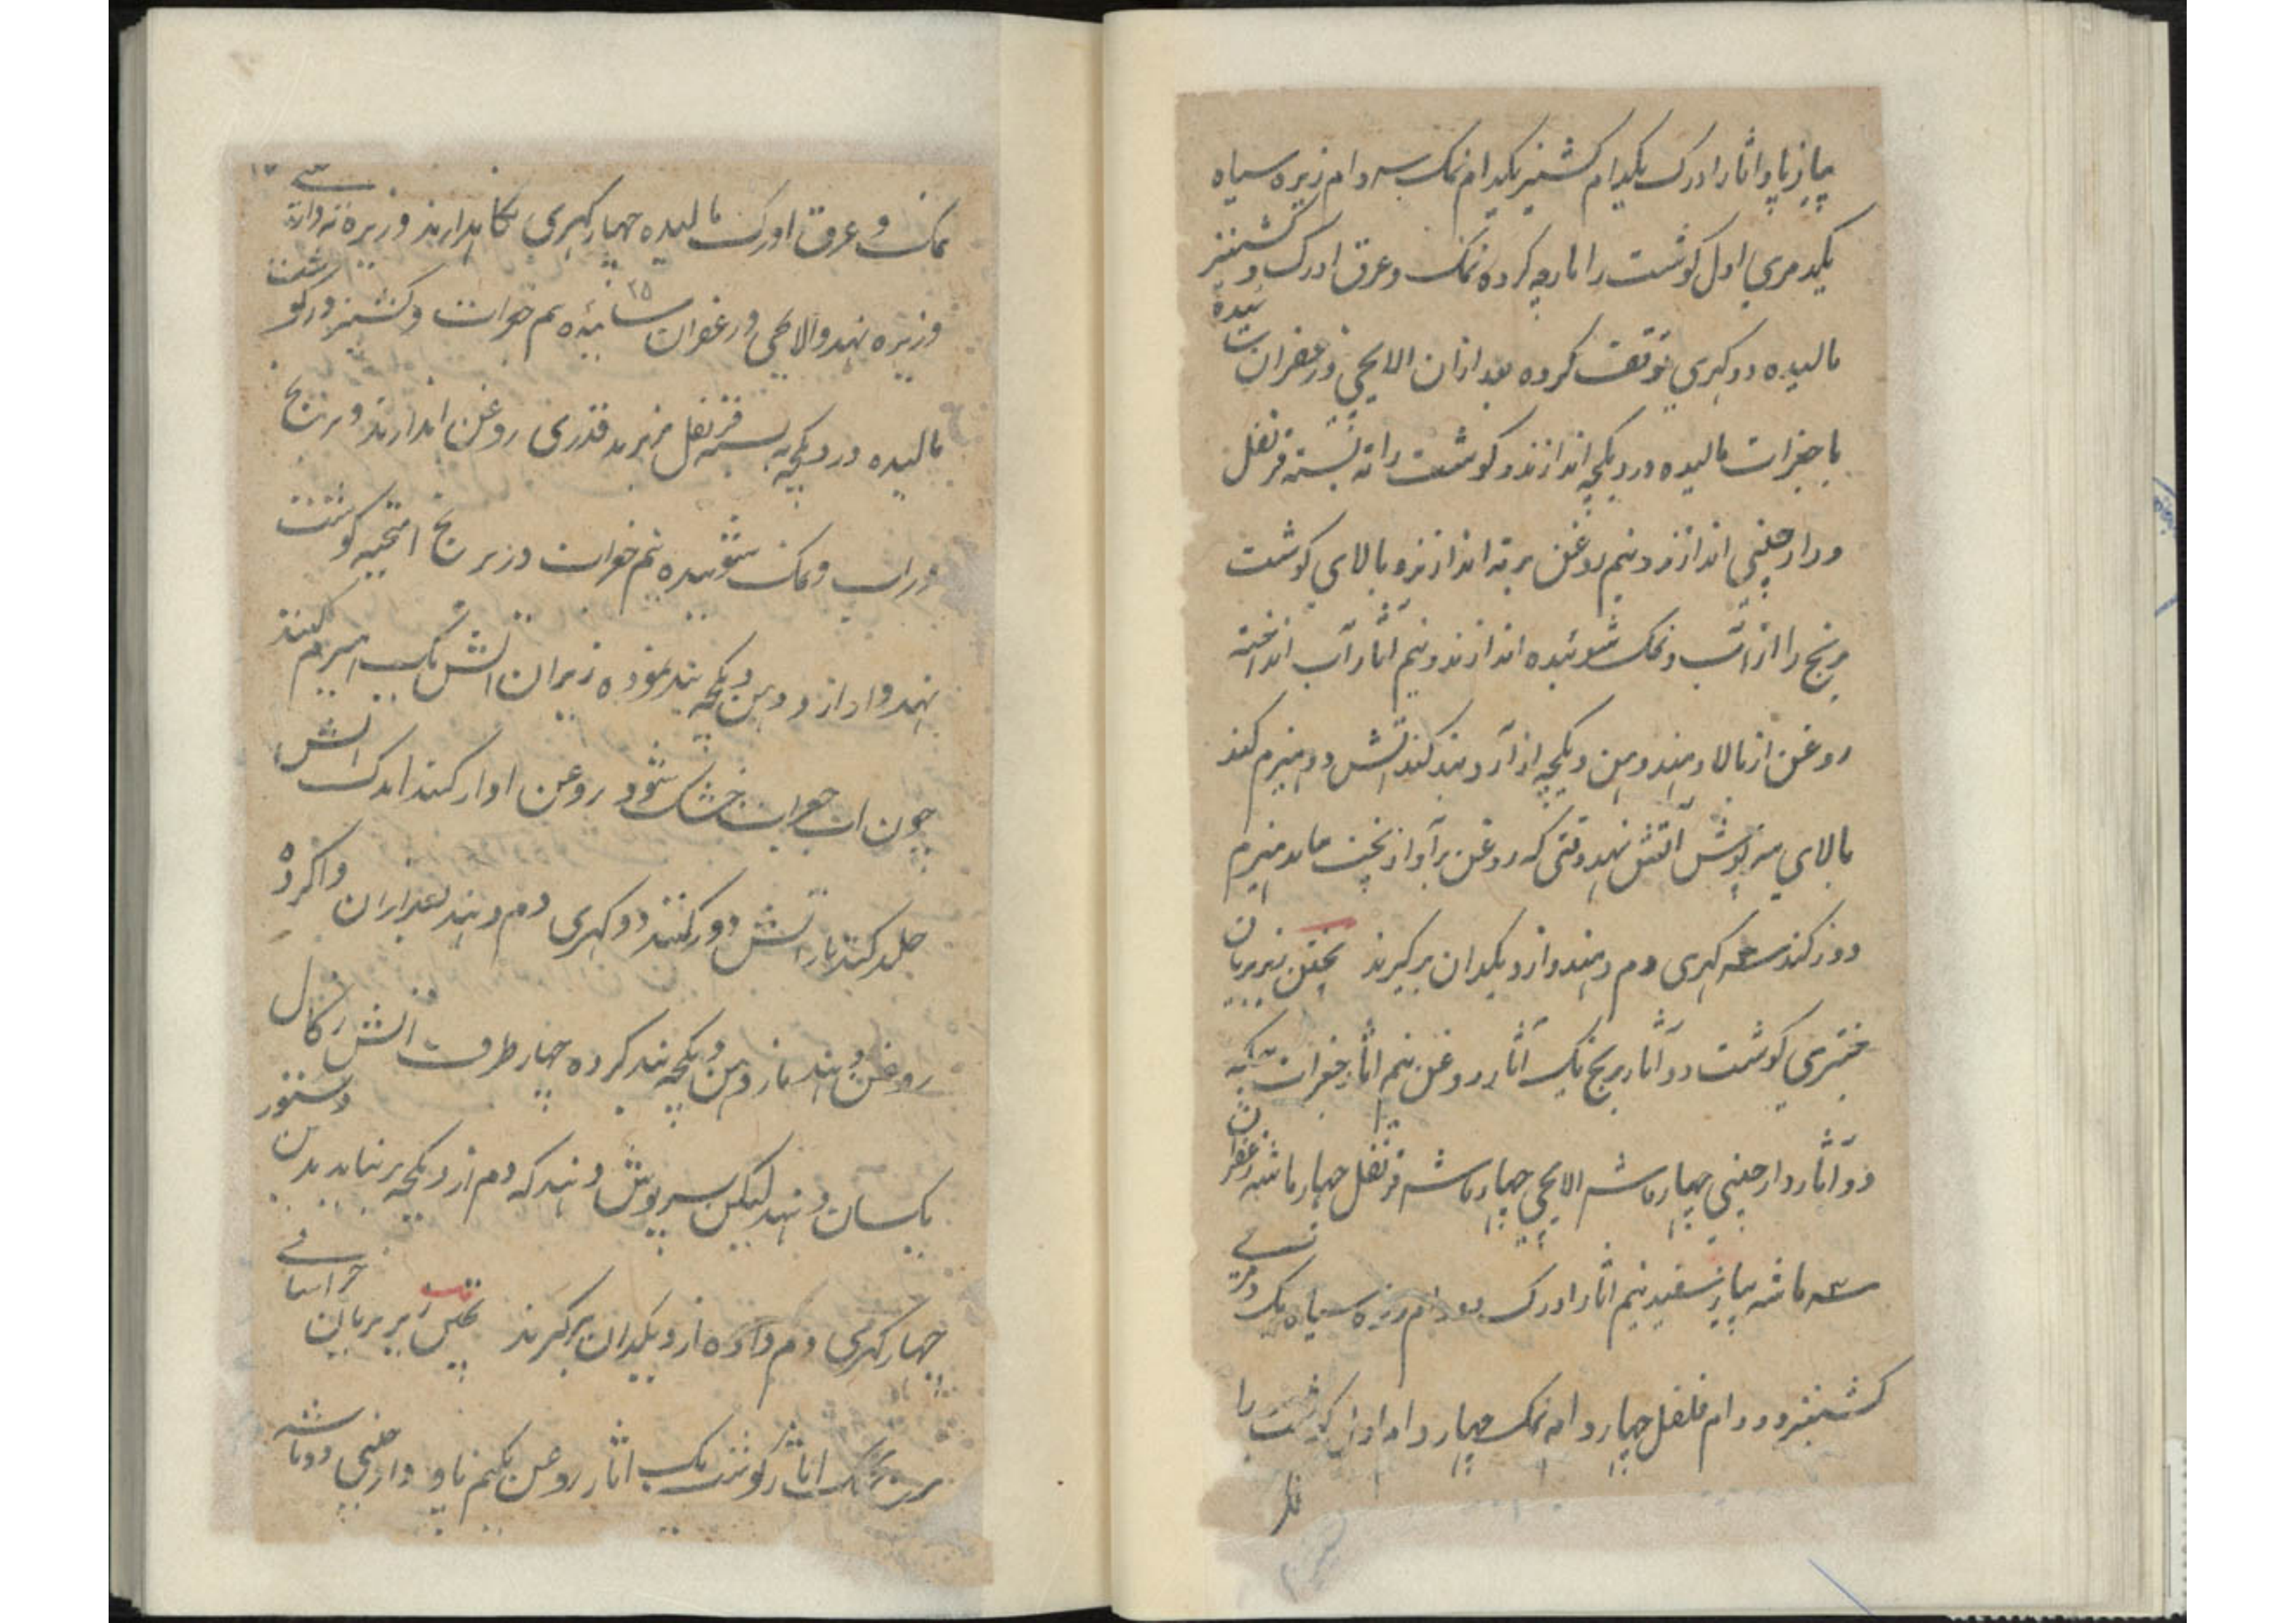 پیاز پاو اثار ادرک یکدام کشنیز یکدام نمک سه دام زیره سیاه
یکدمری اول گوشت را پارچه کرده نمک و عرق ادرک و کشنیز
مالیده دو کهری توقف کرده بعد ازان الایچی و زعفران
با جغرات مالیده در دیکچه اندازند و گوشت را ته بسته قرنفل
و دارچینی اندازند و نیم روغن بر ته اندازند و بالای گوشت
برنج را از آب و نمک شوئیده اندازند و نیم آثار آب انداخته
روغن از بالا دهند و دهن دیکچه از آرد بند کنند آتش دو هیزم کنند
بالای سرپوش آتش نهند وقتی که روغن بر آواز پختن هیزم
دور کنند سه کهری دم دهند و از دیکدان برگیرند پختن زیربریان
گوشت دو آثار برنج یک آثار روغن نیم اثار جغرات
دو آثار دارچینی چهار ماشه الایچی چهار ماشه قرنفل چهار ماشه زعفران
سه ماشه پیاز سفید نیم اثار ادرک دو دام زیره سیاه یک دمری
کشنیز دو دام فلفل چهار دام نمک چهار دام اول گوشت را
نمک و عرق ادرک مالیده چهار کهری نگاهدارند و زیره
و زیره نهند و الاچی و زعفران سائیده نیم جغرات و کشنیز در گوشت
مالیده در دیکچه ته بسته قرنفل قدری روغن اندازند و برنج
در آب و نمک شوئیده نیم جغرات در برنج گوشت
نهند و از آرد دهن دیکچه بند نموده زیر آن آتش یک هیزم کنند
چون آب جغرات خشک شود روغن کنند آتش
جلد کنند باز آتش دور کنند دو کهری دم دهند بعد ازان وا کرده
روغن دهند باز دهن دیکچه بند کرده چهار طرف آتش زکال
یکسان دهند لیکن سرپوش دهند که دم از دیکچه بر نیاید بدین دستور
چهار کهری دم داده از دیکدان برگیرند پختن زیربریان خراسانی
برنج یک اثار گوشت یک اثار روغن یکنیم پاو دارچینی دو ماشه